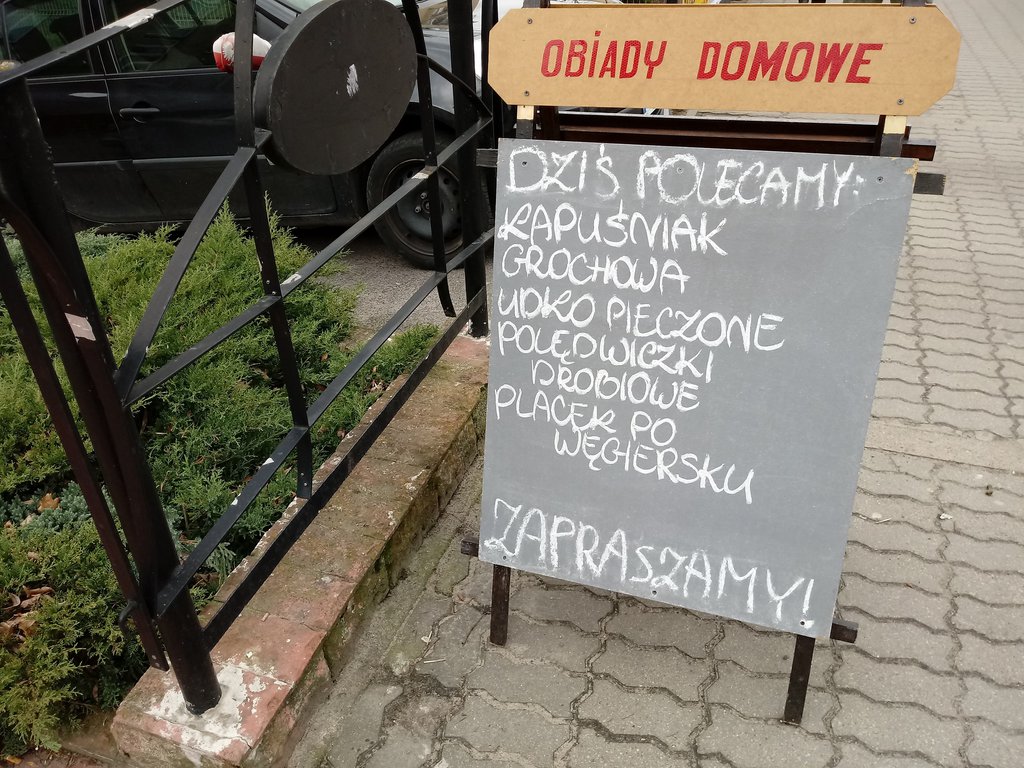 OBiADY DOMOWE
DZIŚ POLECAMY:
KAPUŚNIAK
GROCHOWA
UDKO PIECZONE
POLĘDWICZKI
DROBIOWE
PLACEK PO
WĘGIERSKU
ZAPRASZAMY!